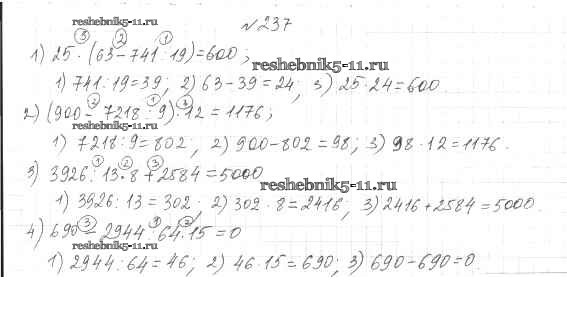 reshebnik5-11.ru
№237
1) 25 · (63 − 741 : 19) = 600;
reshebnik5-11.ru
1) 741 : 19 = 39; 2) 63 − 39 = 24; 3) 25 · 24 = 600.
reshebnik5-11.ru
2) (900 − 7218 : 9) · 12 = 1176;
1) 7218 : 9 = 802; 2) 900 − 802 = 98; 3) 98 · 12 = 1176.
3) 3926 : 13 · 8 + 2584 = 5000
reshebnik5-11.ru
1) 3926 : 13 = 302; 2) 302 · 8 = 2416; 3) 2416 + 2584 = 5000.
4) 690 − 2944 : 64 · 15 = 0
reshebnik5-11.ru
1) 2944 : 64 = 46; 2) 46 · 15 = 690; 3) 690 − 690 = 0.